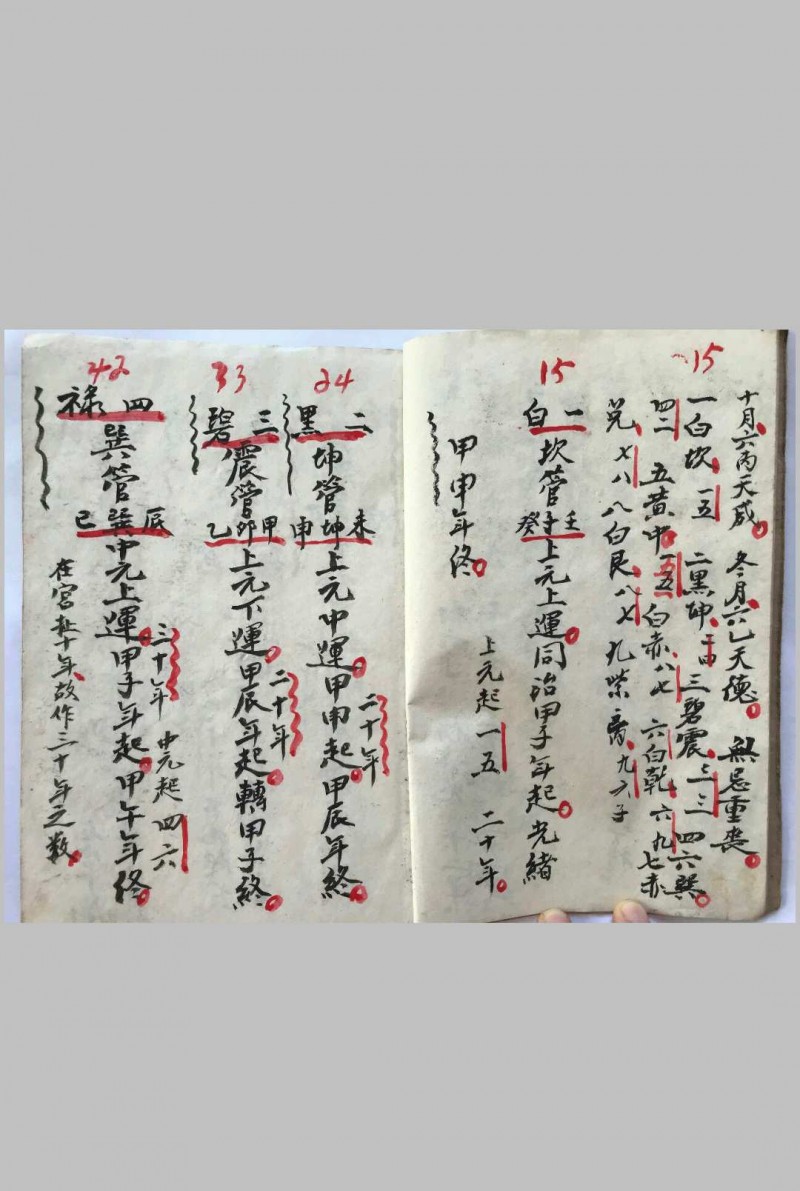 十月六丙天咸 冬月六乙天德 無忌重喪
15
一白坎 一五 二黑坤 二四 三碧震 三三 四六巽
四二 五黄中 一五 白赤八七 六白乾 六九 七赤
兑 七八 八白艮 八七 九紫 九六子
15
一白
坎管壬子癸上元上運同治甲子年起光緒
甲申年終
上元起一五 二十年
24
二黑
坤管未坤申上元中運甲申起甲辰年終
二十年
33
三碧
震管甲卯乙上元下運甲辰年起轉甲子終
二十年
42
四禄
巽管辰巽巳中元上運甲子年起甲午年終
三十年 中元起四六
在宮赴十年故作三十年之数